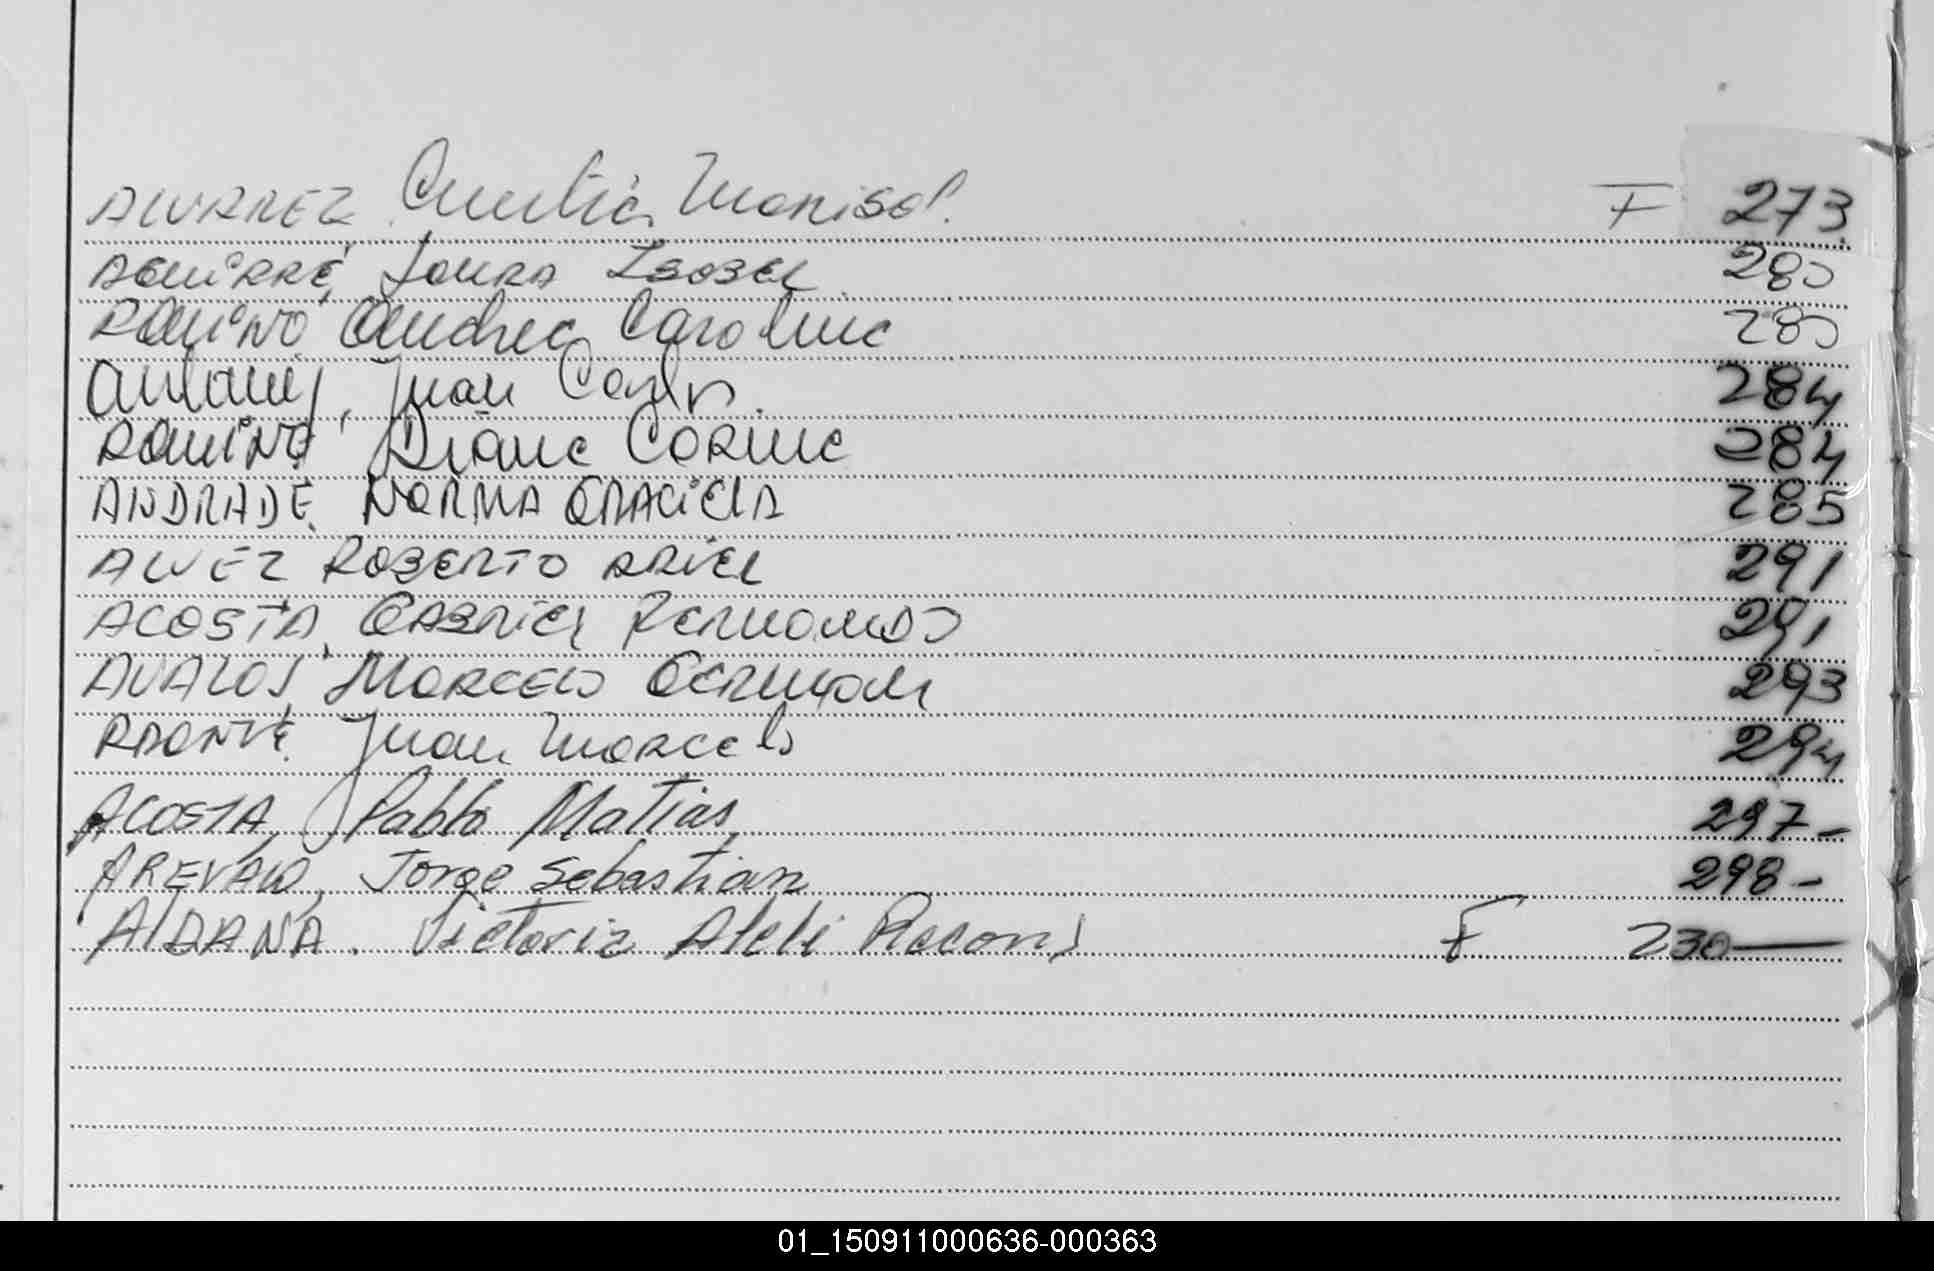 ALVAREZ Cintia Marisol. F 273
AGUIRRE, Laura Isabel 280
Andrea Carolina 280
Juan Carlos 284
Diana Corina 284
ANDRADE NORMA GRACIELA 285
ALVEZ ROBERTO ARIEL 291
ACOSTA, GABRIEL Fernando 291
AVALOS MARCELO GERMAN 293
Juan Marcelo 294
ACOSTA, Pablo Matias 297-
AREVALO, Jorge Sebastian 298-
ALDANA. Victoria Aleli F 230
01_150911000636-000363